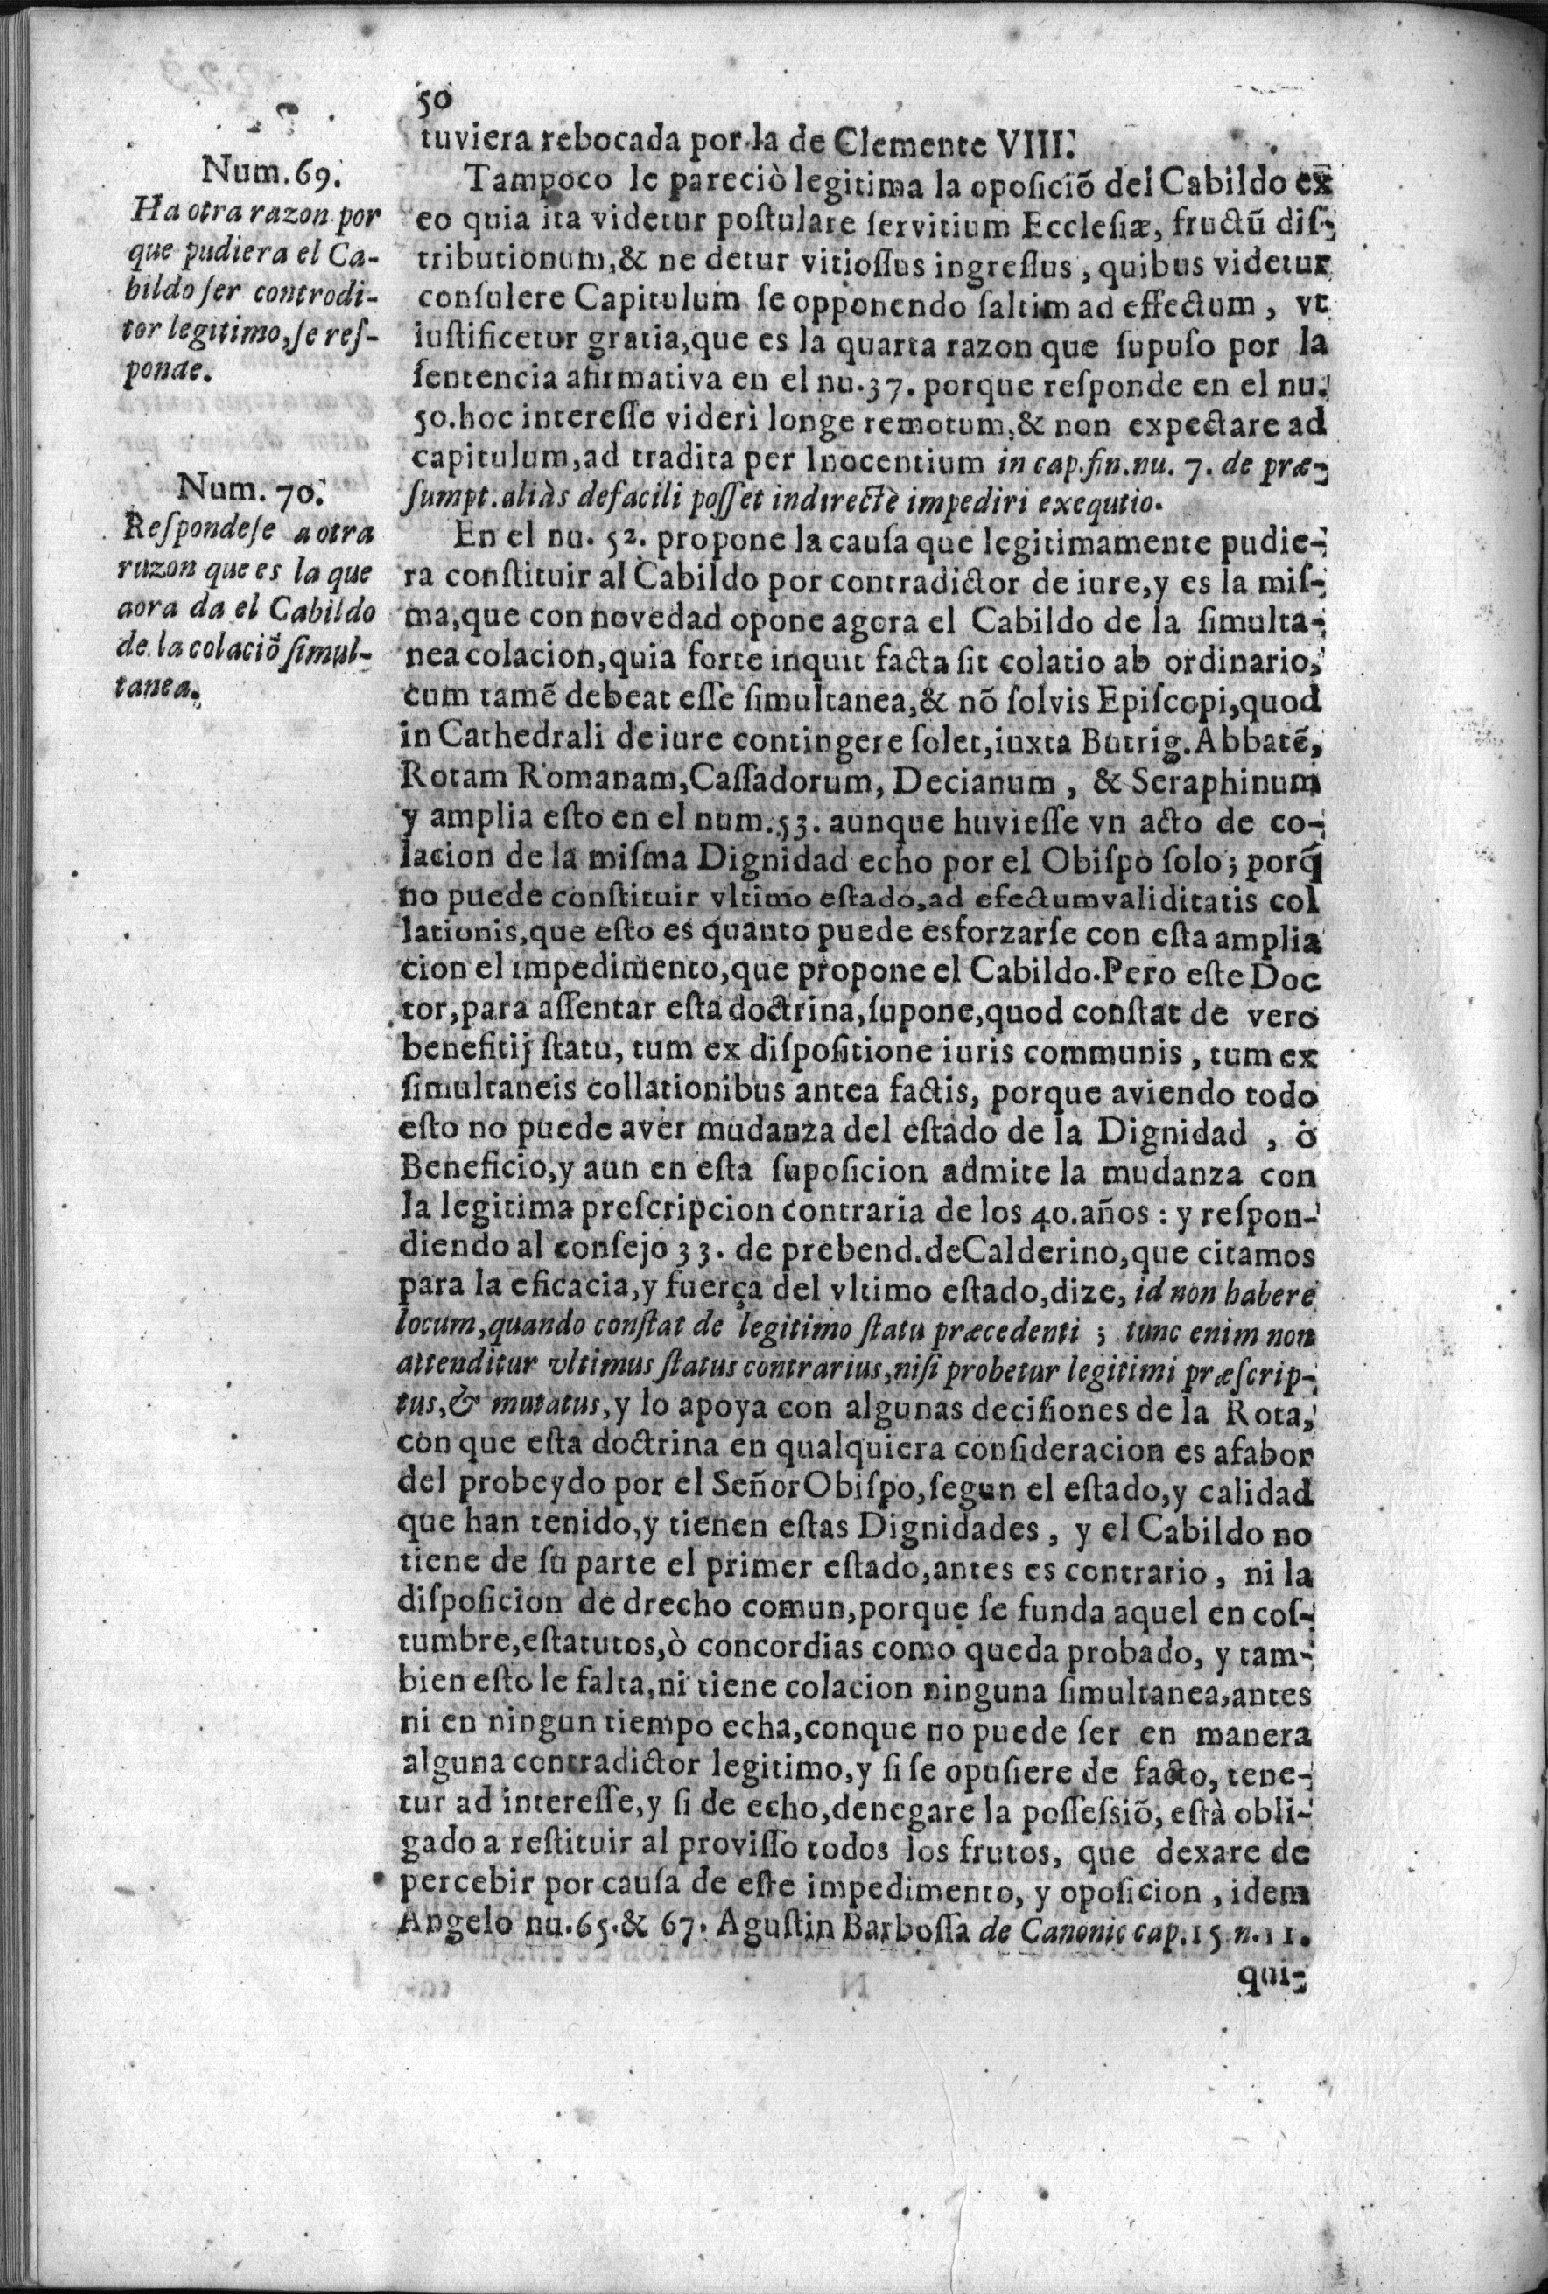 50
tuviera rebocada por la de Clemente VIII.
Num. 69.
Ha otra razon por
que pudiera el Ca-
bildo ſer controdi-
tor legitimo, ſe reſ-
ponde.
Tampoco le pareciò legitima la opoſiciõ del Cabildo ex
eo quia ita videtur poſtulare ſervitium Eccleſiæ, fructũ diſ-
tributionum, & ne detur vitioſſus ingreſſus, quibus videtur
conſulere Capitulum ſe opponendo ſaltim ad effectum, vt
iuſtificetur gratia, que es la quarta razon que ſupuſo por la
ſentencia afirmativa en el nu. 37. porque reſponde en el nu.
50. hoc intereſſe videri longe remotum, & non expectare ad
capitulum, ad tradita per Inocentium in cap. fin. nu. 7. de præ-
ſumpt. aliàs defacili poſſet indirectè impediri exequtio.
Num. 70.
Reſpondeſe a otra
razon que es la que
aora da el Cabildo
de la colaciõ ſimul-
tanea.
En el nu. 52. propone la cauſa que legitimamente pudie-
ra conſtituir al Cabildo por contradictor de iure, y es la miſ-
ma, que con novedad opone agora el Cabildo de la ſimulta-
nea colacion, quia forte inquit facta ſit colatio ab ordinario,
cum tamẽ debeat eſſe ſimultanea, & nõ ſolvis Epiſcopi, quod
in Cathedrali de iure contingere ſolet, iuxta Butrig. Abbatẽ,
Rotam Romanam, Caſſadorum, Decianum, & Seraphinum
y amplia eſto en el num. 53. aunque huvieſſe vn acto de co-
lacion de la miſma Dignidad echo por el Obiſpo ſolo; porq̃
no puede conſtituir vltimo eſtado, ad efectum validitatis col
lationis, que eſto es quanto puede esforzarſe con eſta amplia
cion el impedimento, que propone el Cabildo. Pero eſte Doc
tor, para aſſentar eſta doctrina, ſupone, quod conſtat de vero
benefitij ſtatu, tum ex diſpoſitione iuris communis, tum ex
ſimultaneis collationibus antea factis, porque aviendo todo
eſto no puede aver mudanza del eſtado de la Dignidad, ò
Beneficio, y aun en eſta ſupoſicion admite la mudanza con
la legitima preſcripcion contraria de los 40. años: y reſpon-
diendo al conſejo 33. de prebend. de Calderino, que citamos
para la eficacia, y fuerça del vltimo eſtado, dize, id non habere
locum, quando conſtat de legitimo ſtatu præcedenti; tunc enim non
attenditur vltimus ſtatus contrarius, niſi probetur legitimi præſcrip-
tus, & mutatus, y lo apoya con algunas deciſiones de la Rota,
con que eſta doctrina en qualquiera conſideracion es afabor
del probeydo por el Señor Obiſpo, ſegun el eſtado, y calidad
que han tenido, y tienen eſtas Dignidades, y el Cabildo no
tiene de ſu parte el primer eſtado, antes es contrario, ni la
diſpoſicion de drecho comun, porque ſe funda aquel en coſ-
tumbre, eſtatutos, ò concordias como queda probado, y tam-
bien eſto le falta, ni tiene colacion ninguna ſimultanea, antes
ni en ningun tiempo echa, conque no puede ſer en manera
alguna contradictor legitimo, y ſi ſe opuſiere de facto, tene-
tur ad intereſſe, y ſi de echo, denegare la poſſeſsiõ, eſtà obli-
gado a reſtituir al proviſſo todos los frutos, que dexare de
percebir por cauſa de eſte impedimento, y opoſicion, idem
Angelo nu. 65. & 67. Aguſtin Barboſſa de Canonic cap. 15 n. 11.
qui-